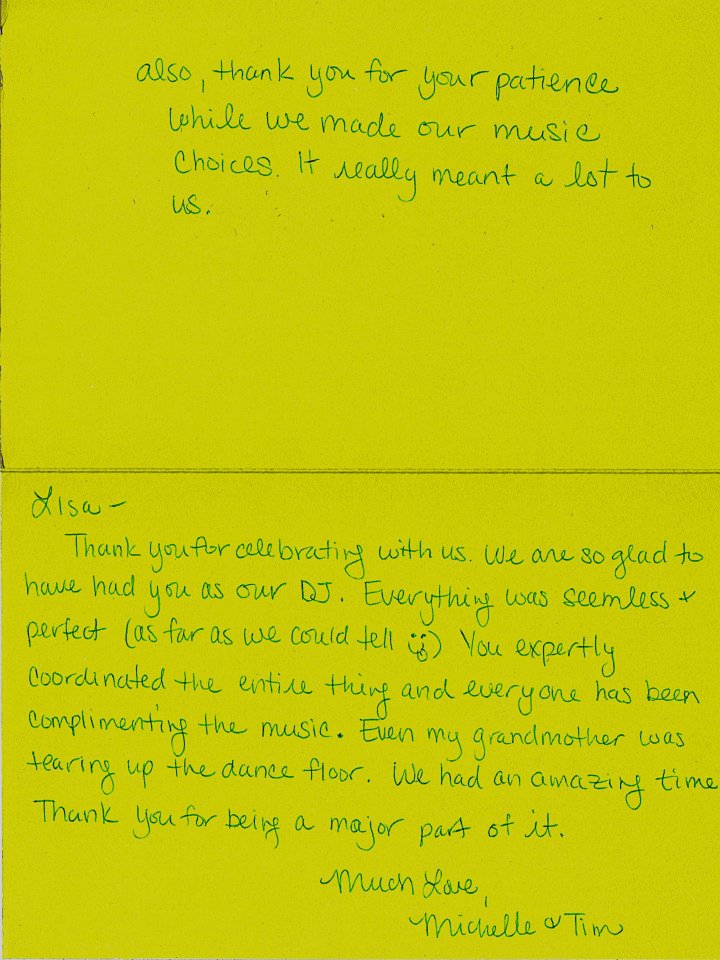 also, thank you for your patience
while we made our music
choices. It really meant a lot to
us.
Lisa-
Thank you for celebrating with us. We are so glad to
have had you as our DJ. Everything was seemless &
perfect (as far as we could tell ) You expertly
coordinated the entire thing and everyone has been
complimenting the music. Even my grandmother was
tearing up the dance floor. We had an amazing time
Thank you for being a major part of it.
Much Love,
Michelle & Tim